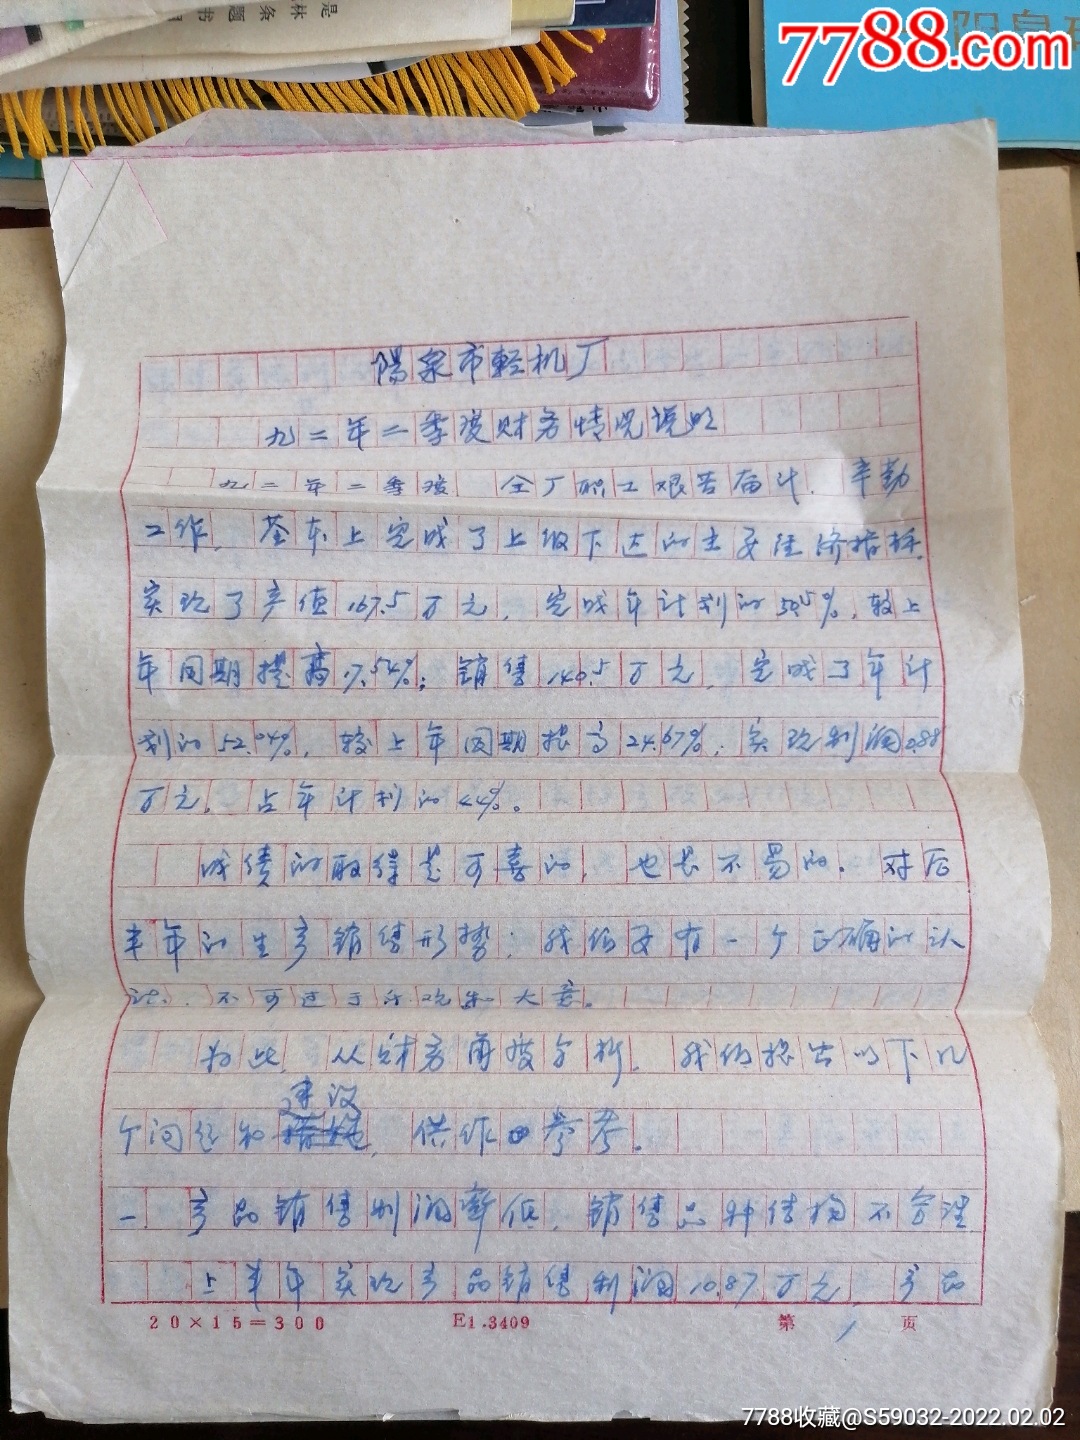 7788.com
陽泉市轻机厂
九二年二季度财务情况说明
九二年二季度 全厂职工艰苦奋斗、辛勤
工作，基本上完成了上级下达的主要经济指标
实现了产值167.5万元，完成年计划的 ，较上
年同期提高17.54%；销售140.5万元，完成了年计
划的52.04%，较上年同期提高24.67%；实现利润0.88
万元，占年计划的44%。
成绩的取得是可喜的，也是不易的。对后
半年的生产销售形势，我们要有一个正确的认
识，不可过于乐观和大意。
为此，从财务角度分析，我们提出以下几
建议
个问题和 ，供作参考。
一 产品销售利润率低，销售品种结构不合理
上半年实现产品销售利润10.87万元，产品
20×15=300
E1.3409
第 1 页
7788收藏@S59032-2022.02.02